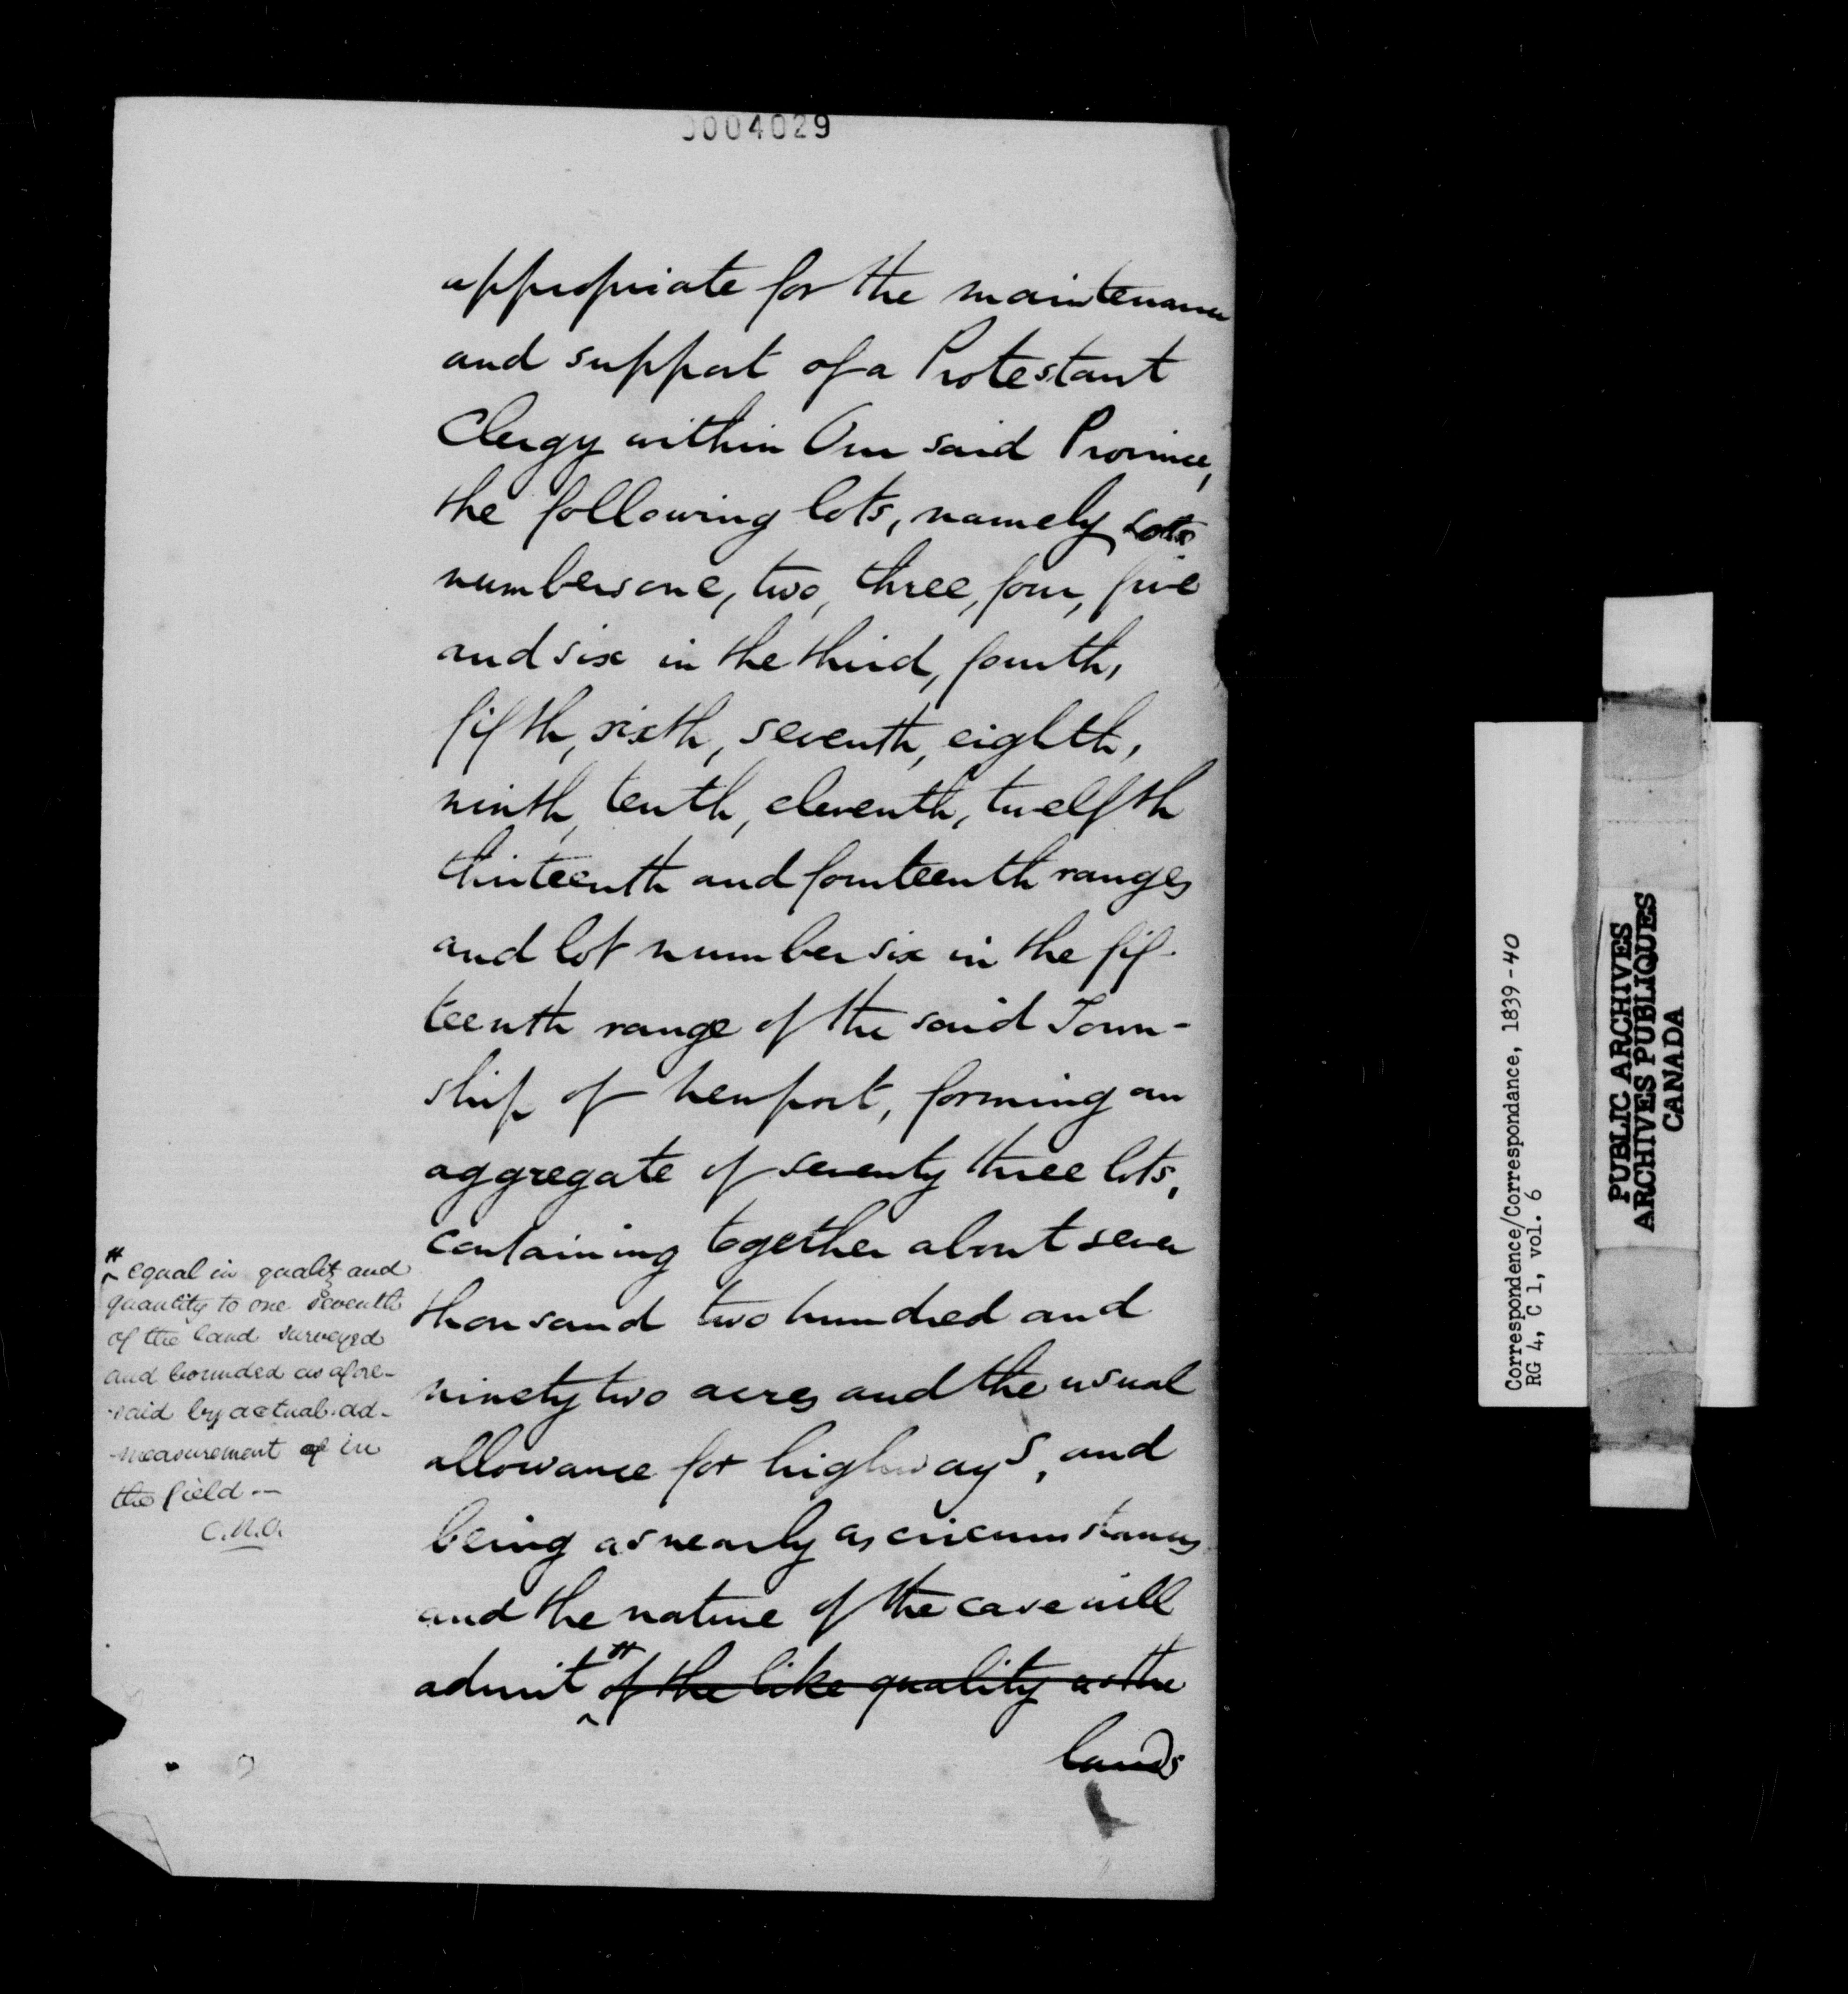 0004029
appropriate for the maintenance
and support of a Protestant
Clergy within Our said Province,
the following lots, namely Lots
numbers one, two, three, four, five
and six in the third, fourth,
fifth, sixth, seventh, eighth,
ninth, tenth, eleventh, twelfth
thirteenth and fourteenth ranges
and lot number six in the fif-
teenth range of the said Town-
ship of Newport, forming an
aggregate of seventy three lots,
containing together about seven
thousand two hundred and
ninety two acres and the usual
allowance for highways, and
being as nearly as circumstances
and the nature of the case will
admit # of the like quality as the
lands
# equal in quality and
quantity to one seventh
of the land surveyed
and bounded as afore-
-said by actual ad-
-measurement of in
the field.—
C.N.O.
Correspondence/Correspondance, 1839-40
RG 4, C 1, vol. 6
PUBLIC ARCHIVES
ARCHIVES PUBLIQUES
CANADA